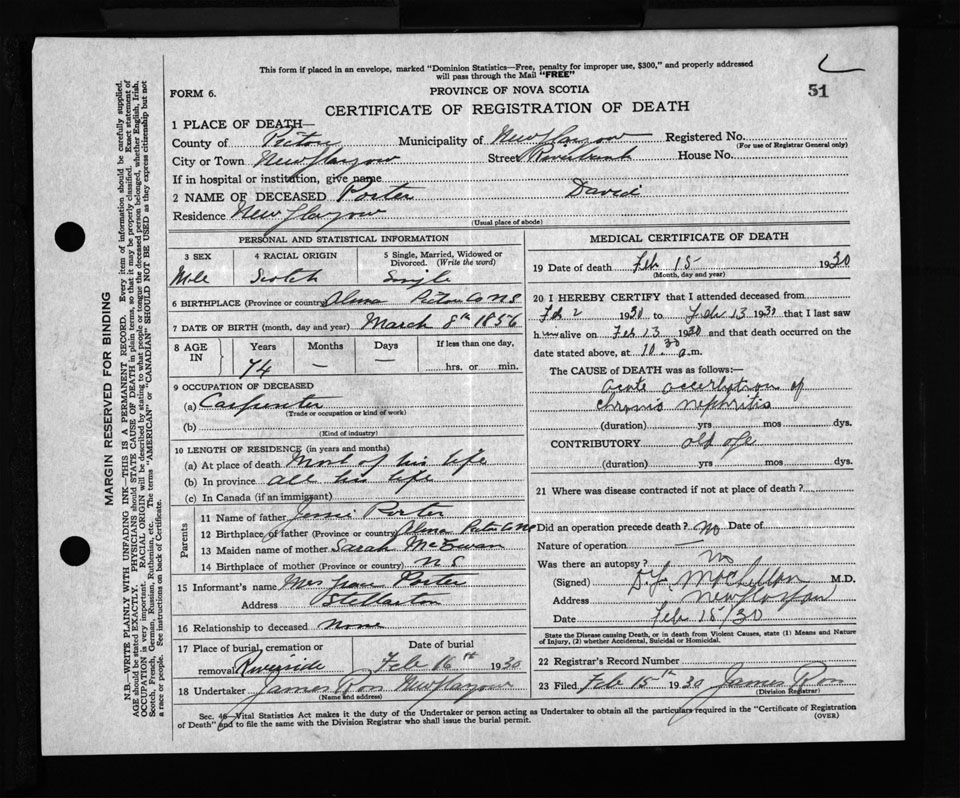 This form if placed in an envelope, marked "Dominion Statistics—Free, penalty for improper use, $300," and properly addressed
will pass through the Mail "FREE"
FORM 6.
PROVINCE OF NOVA SCOTIA
51
CERTIFICATE OF REGISTRATION OF DEATH
1 PLACE OF DEATH—
County of Pictou Municipality of New Glasgow Registered No.
(For use of Registrar General only)
City or Town New Glasgow Street House No.
If in hospital or institution, give name
2 NAME OF DECEASED Porter David
Residence New Glasgow
(Usual place of abode)
PERSONAL AND STATISTICAL INFORMATION
3 SEX 4 RACIAL ORIGIN 5 Single, Married, Widowed or Divorced. (Write the word)
Male Scotch Single
6 BIRTHPLACE (Province or country) Alma Pictou Co NS
7 DATE OF BIRTH (month, day and year) March 8th 1856
8 AGE IN Years Months Days If less than one day,
74 — — hrs. or min.
9 OCCUPATION OF DECEASED
(a) Carpenter
(Trade or occupation or kind of work)
(b)
(Kind of industry)
10 LENGTH OF RESIDENCE (in years and months)
(a) At place of death Most of his life
(b) In province all his life
(c) In Canada (if an immigrant)
Parents
11 Name of father Porter
12 Birthplace of father (Province or country) Alma Pictou Co NS
13 Maiden name of mother Sarah McEwan
14 Birthplace of mother (Province or country) NS
15 Informant's name Mrs Porter
Address Stellarton
16 Relationship to deceased None
17 Place of burial, cremation or removal Riverside Date of burial Feb 16th 1930
18 Undertaker James Ross New Glasgow
(Name and address)
MEDICAL CERTIFICATE OF DEATH
19 Date of death Feb 15 1930
(Month, day and year)
20 I HEREBY CERTIFY that I attended deceased from
Feb 2 1930 to Feb 13 1930 that I last saw
him alive on Feb 13 1930 and that death occurred on
date stated above, at 10.30 a.m.
The CAUSE of DEATH was as follows:—
acute of
chronic nephritis
(duration) yrs mos dys.
CONTRIBUTORY old age
(duration) yrs mos dys.
21 Where was disease contracted if not at place of death?
Did an operation precede death? No Date of
Nature of operation —
Was there an autopsy? no
(Signed) MacLellan M.D.
Address New Glasgow
Date Feb 15/30
State the Disease causing Death, or in death from Violent Causes, state (1) Means and Nature
of Injury, (2) whether Accidental, Suicidal or Homicidal.
22 Registrar's Record Number
23 Filed Feb 15th 1930 James Ross
(Division Registrar)
Sec. 46—Vital Statistics Act makes it the duty of the Undertaker or person acting as Undertaker to obtain all the particulars required in the "Certificate of Registration
of Death" and to file the same with the Division Registrar who shall issue the burial permit.
(OVER)
MARGIN RESERVED FOR BINDING
N.B.—WRITE PLAINLY WITH UNFADING INK—THIS IS A PERMANENT RECORD. Every item of information should be carefully supplied.
AGE should be stated EXACTLY. PHYSICIANS should STATE CAUSE OF DEATH in plain terms, so that it may be properly classified. Exact statement of
OCCUPATION is very important. RACIAL ORIGIN will be described by stating to what people or tongue the deceased person belonged, whether English, Irish,
Scotch, French, German, Russian, Ruthenian, etc. The terms "AMERICAN" or "CANADIAN" SHOULD NOT BE USED as they express citizenship but not
a race or people. See instructions on back of Certificate.